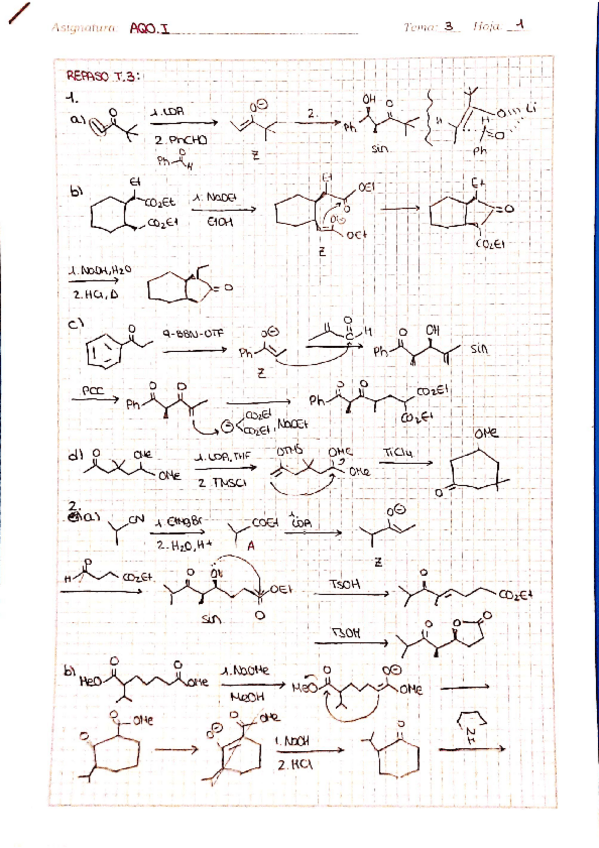 Asignatura AQO.I Tema: 3 Hoja: 1
REPASO T.3:
1.
a) O 1. LDA O⊖ 2. OH O
2. PhCHO Ph sin O Li
Ph O H Z H O Ph
b) Et CO2Et 1. NaOEt Et OEt Et
CO2Et EtOH O OEt O
Z CO2Et
1. NaOH, H2O
2. HCl, Δ O
c) O 9-BBN-OTf O⊖ O H O OH
Ph Z Ph sin
PCC O O O O CO2Et
Ph ⊖ CO2Et CO2Et, NaOEt Ph CO2Et
d) O OMe OMe 1. LDA, THF OTMS OMe OMe TiCl4 OMe
2. TMSCl O
2.
a) CN 1. EtMgBr COEt 1. LDA O⊖
2. H2O, H+ A Z
H O CO2Et O OH OEt O TsOH O CO2Et
sin
TsOH O O O
b) MeO O O OMe 1. NaOMe MeO O O⊖ OMe
MeOH
O O OMe O⊖ O OMe 1. NaOH O N H
2. HCl